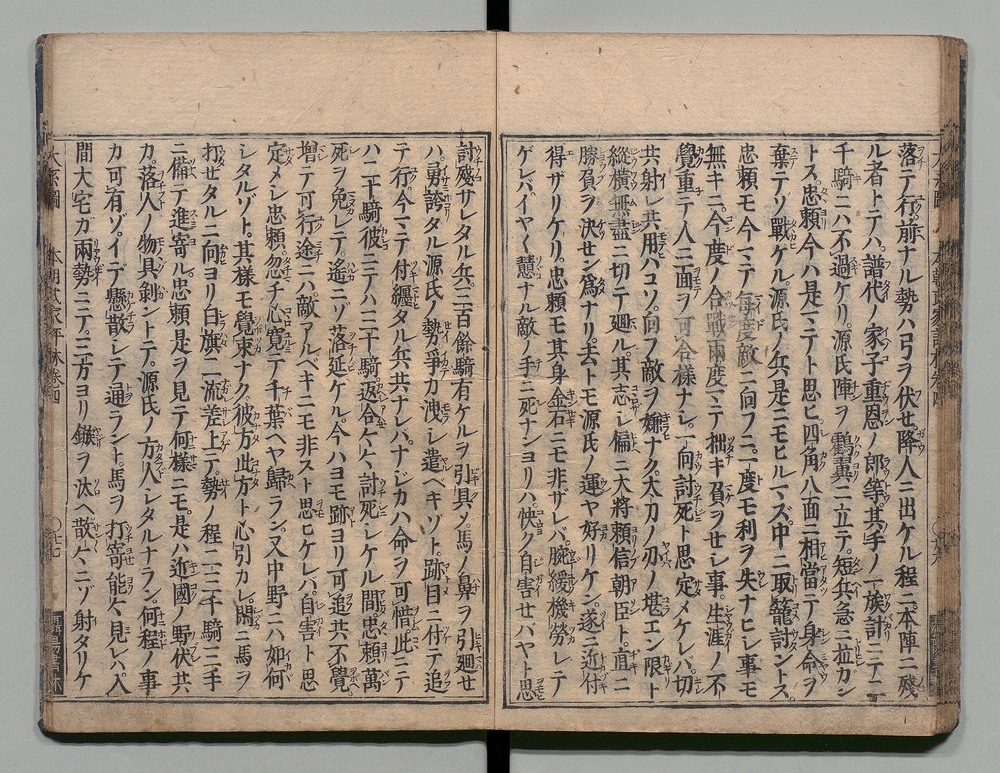 落テ行。前ナル勢ハ弓ヲ伏セ降人ニ出ケル程ニ本陣ニ殘
ル者トテハ譜代ノ家子重恩ノ郎等其手ノ一族計ニテ二
千騎ニハ不過ケリ。源氏陣ヲ鶴翼ニ立テ短兵急ニ拉カン
トス。忠頼今ハ是マテト思ヒ四角八面ニ相當テ身命ヲ
棄テソ戰ケル。源氏ノ兵是ヲモヒルマズ中ニ取籠討ントス。
忠頼モ今マテ毎度敵ニ向フニ一度モ利ヲ失ナヒシ事モ
無キニ今度ノ合戰兩度マテ拙キ負ヲセシ事。生涯ノ不
覺重テ人ニ面ヲ可合様ナシ。一向討死ト思定メケレバ。切
共射レ共用ハコソ。向フ敵ヲ嫌ナク太刀ノ刃ノ堪エン限ト
縱横無盡ニ切テ廻ル。其志シ偏ニ大將頼信朝臣ト直ニ
勝負ヲ決セン爲ナリ。去トモ源氏ノ運ヤ好リケン。遂ニ近付
得ザリケリ。忠頼モ其身金石ニモ非ザレバ。腕緩機勞レテ
ゲレバイヤ〱慧ナル敵ノ手ニ死ナンヨリハ快ク自害セハヤト思
討殘サレタル兵二百餘騎有ケルヲ引具ソ。馬ノ鼻ヲ引廻セ
ハ。勇誇タル源氏ノ勢爭カ洩レ遣ベキゾト。跡目ニ付テ追
テ行。今マテ付纒タル兵共ナレバ。ナジカハ命ヲ可惜。此ニテ
ハ二十騎彼ニテハ三十騎返合〱討死シケル間忠頼萬
死ヲ免レテ。遙ニソ落延ケル。今ハヨモ跡ヨリ可追共不覺
増テ可行途ニハ敵アルベキニモ非スト思ヒケレバ。自害ト思
定メシ忠頼。忽チ心寛テ千葉ヘヤ歸ラン。又中野ニハ如何
シタルゾト。其様モ覺束ナク彼方此方ト心引カレ。閑ニ馬ヲ
打セタルニ向ヨリ白旗二流差上テ。勢ノ程二三千騎三手
ニ備テ進寄ル。忠頼是ヲ見テ何様ニモ。是ハ近國ノ野伏共
カ。落人ノ物具剥ントテ。源氏ノ方人シタルナラン。何程ノ事
カ可有ゾ。イデ懸散シテ通ラント。馬ヲ打寄能〱見レバ。入
間大宅カ兩勢ニテ。三方ヨリ鏃ヲ汰ヘ散〱ニゾ射タリケ
本朝武家評林卷四